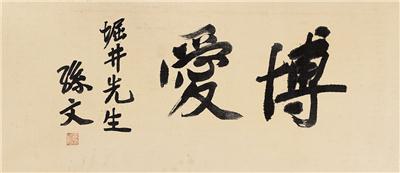 博愛
堀井先生
孫文